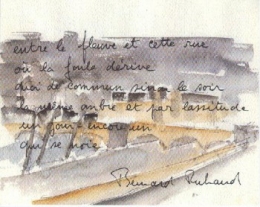 entre le fleuve et cette rue
où la foule dérive
quoi de commun sinon le soir
la même ombre et par lassitude
un jour encore un
qui se noie
Bernard Ruhaud